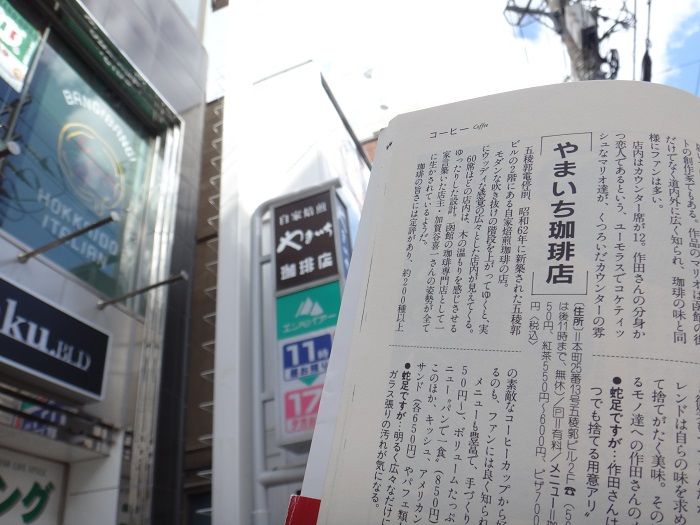 BANG!BANG!
HOKKAIDO
ITALIAN
ku.ELD
自家焙煎
やまいち
珈琲店
エンドロイアー
11時
17
コーヒー Coffee
やまいち珈琲店
五稜郭電停前、昭和62年に新築された五稜郭
ビルの2階にある自家焙煎珈琲の店。
モダンな吹き抜けの階段を上がってゆくと、実
にウッディな感覚の広々とした店内が見えてくる。
60席ほどの店内は、木の温もりを感じさせる
ゆったりした設計。函館の珈琲専門店として一
家言築いた店主・加賀谷喜一さんの姿勢が全て
に生かされているようだ。
珈琲の旨さには定評があり、約200種以上
の素敵なコーヒーカップから
るのも、ファンには良く知ら
メニューも豊富で、手づくり
50円〜)、ボリュームたっぷ
ニュー。“パンで一食”(850円)
このほか、キッシュ、アメリカン
サンド(各650円)やパフェ類
●蛇足ですが…明るく広々なだけに
ガラス張りの汚れが気になる。
トの創作家でもあり、作品の
だけでなく道内外に広く知られ、珈琲の味と同
様にファンは多い。
店内はカウンター席が12。作田さんの分身か
つ恋人であるという、ユーモラスでコケティッ
シュなマリオ達が、くつろいだカウンターの雰
[住所]=本町25番13号五稜郭ビル2F☎(5
は後11時まで、無休)/回=有料/メニュー=
50円、紅茶550円〜600円、ピザ700
円(税込)
レンドは自らの味を求め
て捨てがたく美味。その
るモノ達への作田さんの
●蛇足ですが…作田さん
つでも捨てる用意アリ”